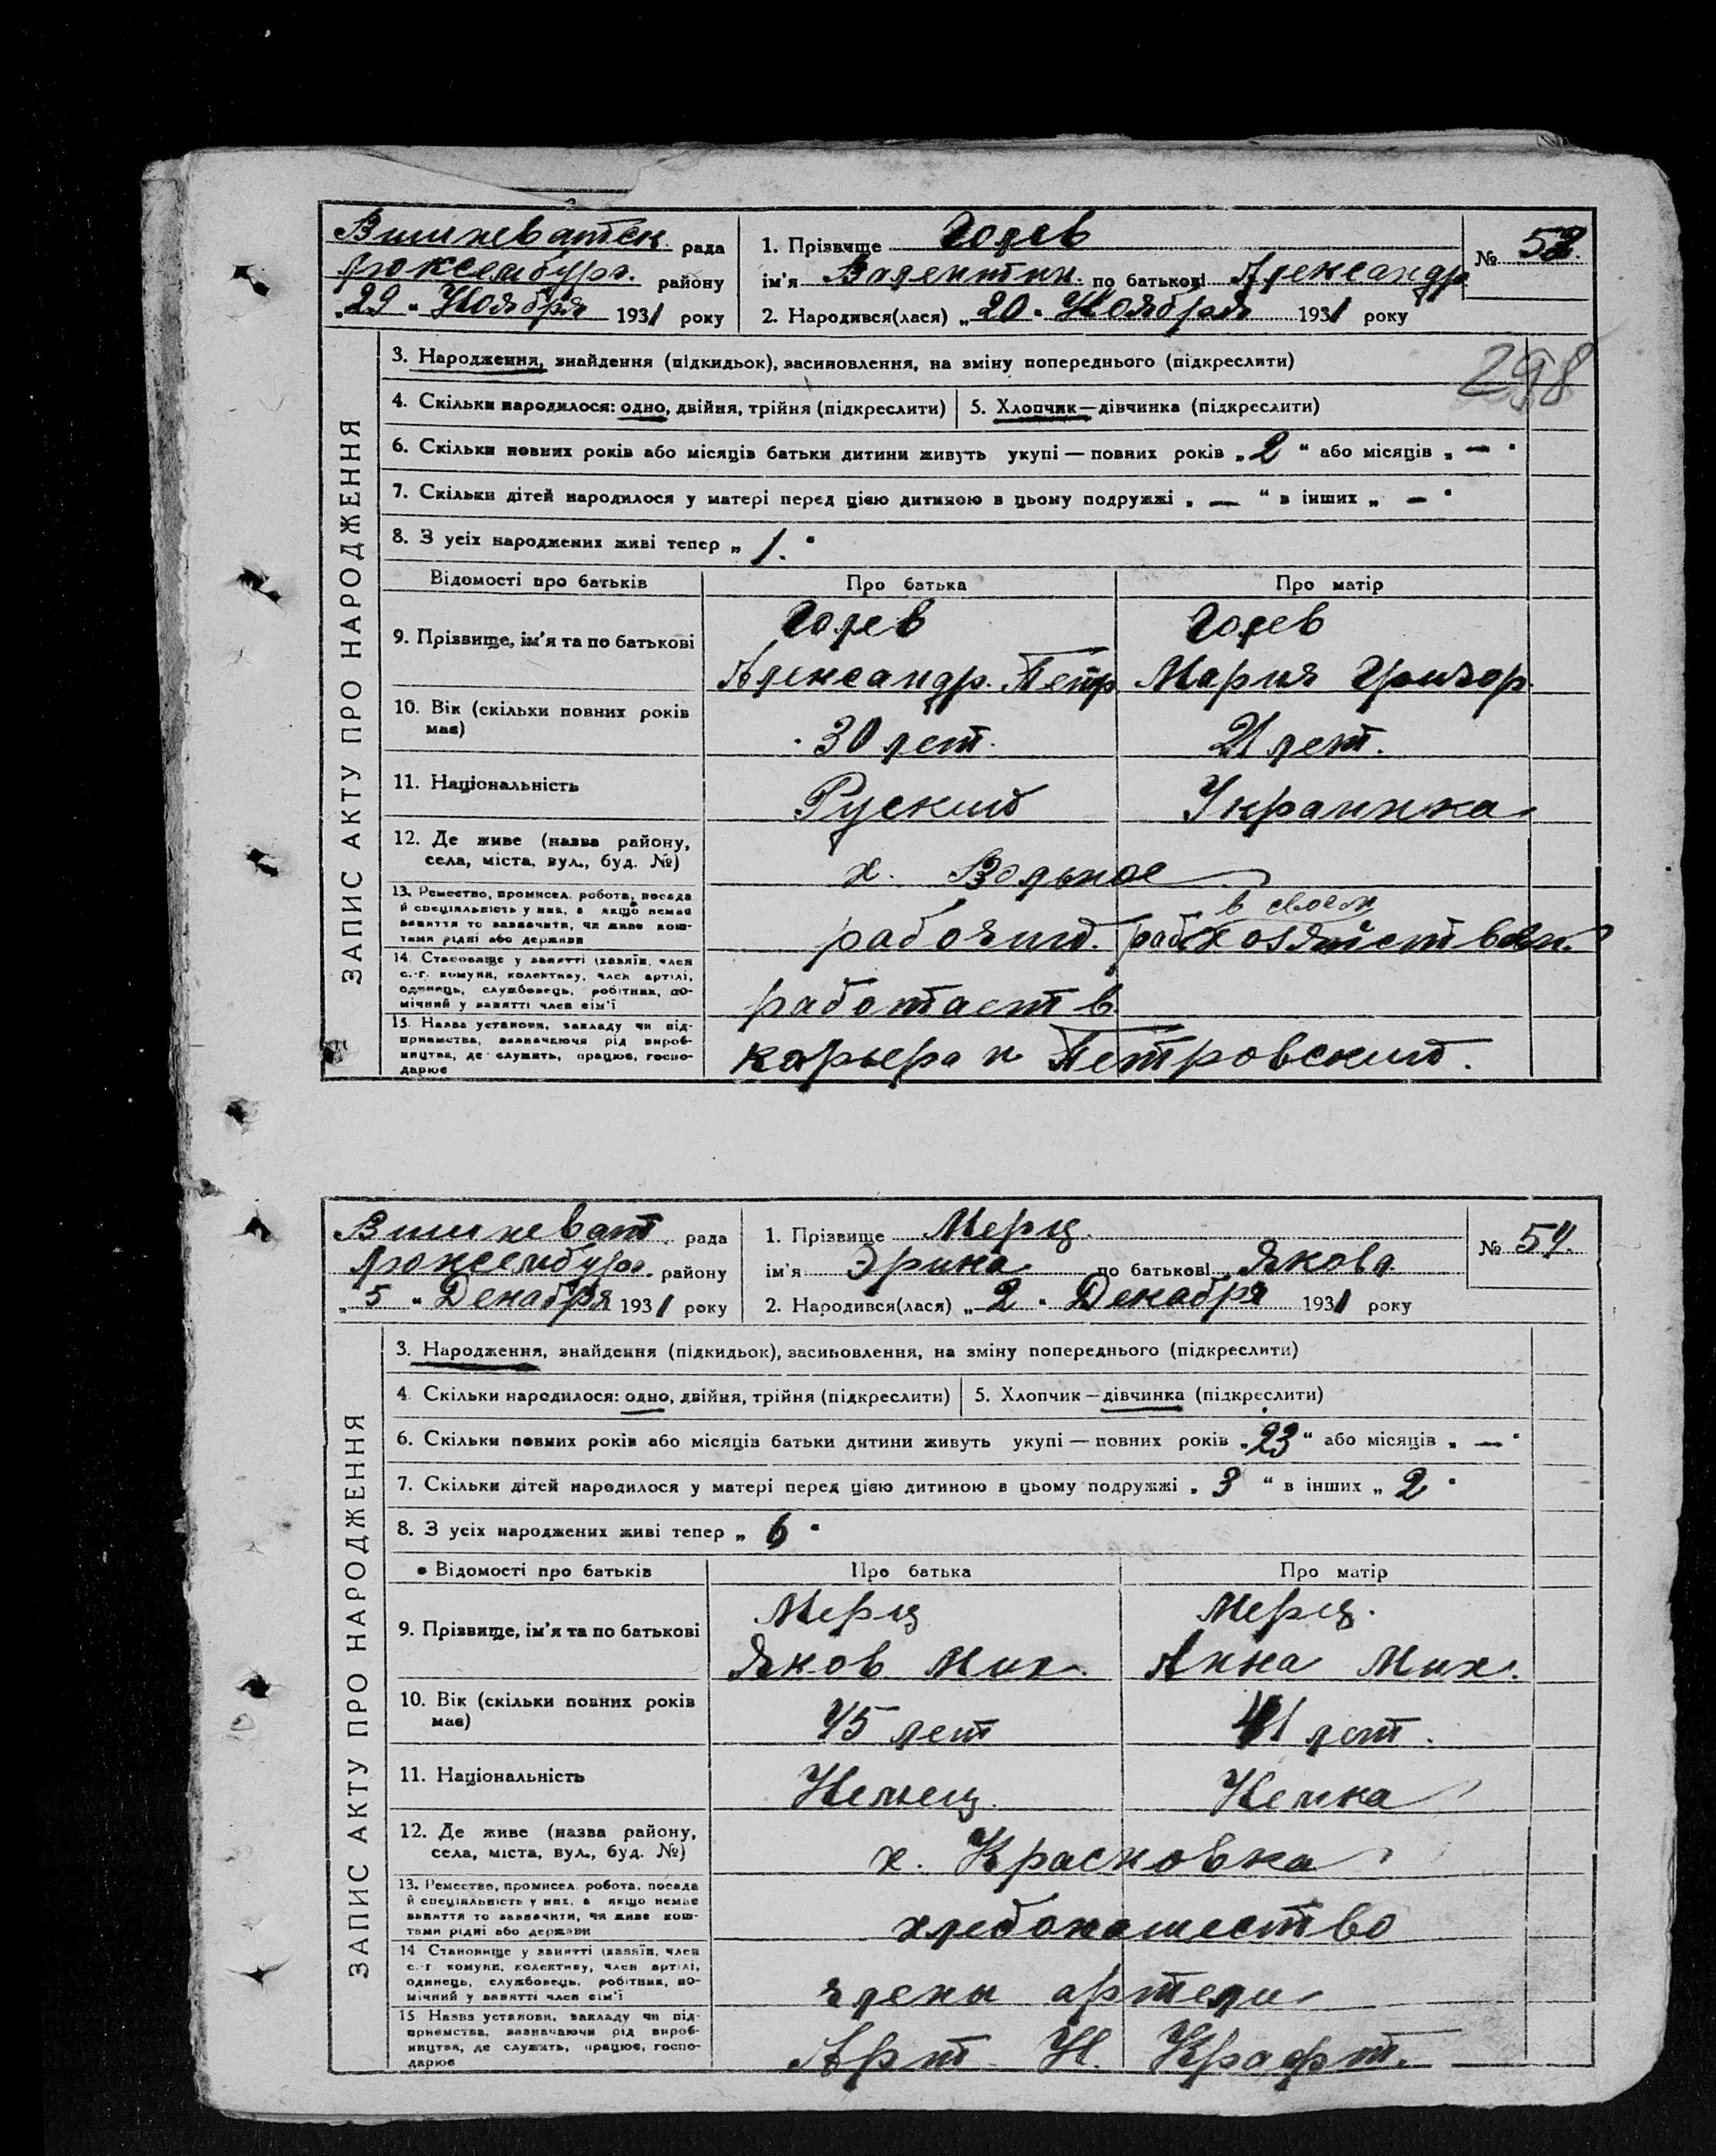 Вишневатск. рада
Люксембург. району
„29 „ Ноября 1931 року
1. Прізвище Голев
ім'я Валентин. по батькові Александр
2. Народився(лася) „ 20 „ Ноября 1931 року
№ 53.
298
ЗАПИС АКТУ ПРО НАРОДЖЕННЯ
3. Народження, знайдення (підкидьок), засиновлення, на зміну попереднього (підкреслити)
4. Скільки народилося: одно, двійня, трійня (підкреслити)
5. Хлопчик—дівчинка (підкреслити)
6. Скільки повних років або місяців батьки дитини живуть укупі — повних років „ 2 “ або місяців „ — “
7. Скільки дітей народилося у матері перед цією дитиною в цьому подружжі „ — “ в інших „ — “
8. З усіх народжених живі тепер „ 1. “
Відомості про батьків Про батька Про матір
9. Прізвище, ім'я та по батькові
Голев Голев
Александр. Петр Мария Григор.
10. Вік (скільки повних років
має)
30 лет. 21 лет.
11. Національність
Руский Украинка
12. Де живе (назва району,
села, міста, вул., буд. №)
х. Вольное
13. Ремество, промисел. робота, посада
й спеціяльність у них, а якщо немає
заняття то зазначити, чи живе кош-
тами рідні або держави
в своем
рабочий. раб хозяйстве
14. Становище у занятті (хазяїн, член
с.-г. комуни, колективу, член артілі,
одинець, службовець, робітник, по-
мічний у занятті член сім'ї
работает в
15. Назва установи, закладу чи під-
приємства, зазначаючи рід вироб-
ництва, де служить, працює, госпо-
дарює
карьера н Петровский.
Вишневат. рада
Люксембург. району
„ 5 „ Декабря 1931 року
1. Прізвище Мерц.
ім'я Эрика по батькові Якова.
2. Народився(лася) „ 2 „ Декабря 1931 року
№ 54.
ЗАПИС АКТУ ПРО НАРОДЖЕННЯ
3. Народження, знайдення (підкидьок), засиновлення, на зміну попереднього (підкреслити)
4. Скільки народилося: одно, двійня, трійня (підкреслити)
5. Хлопчик—дівчинка (підкреслити)
6. Скільки повних років або місяців батьки дитини живуть укупі — повних років „ 23 “ або місяців „ — “
7. Скільки дітей народилося у матері перед цією дитиною в цьому подружжі „ 3 “ в інших „ 2 “
8. З усіх народжених живі тепер „ 6 “
Відомості про батьків Про батька Про матір
9. Прізвище, ім'я та по батькові
Мерц Мерц.
Яков Мих. Анна Мих.
10. Вік (скільки повних років
має)
45 лет 41 лет.
11. Національність
Немец. Немка
12. Де живе (назва району,
села, міста, вул., буд. №)
х. Красновка
13. Ремество, промисел. робота, посада
й спеціяльність у них, а якщо немає
заняття то зазначити, чи живе кош-
тами рідні або держави
хлебопашество
14 Становище у занятті (хазяїн, член
с.-г. комуни, колективу, член артілі,
одинець, службовець, робітник, по-
мічний у занятті член сім'ї
члены артели
15 Назва установи, закладу чи під-
приємства, зазначаючи рід вироб-
ництва, де служить, працює, госпо-
дарює
Арт Н. Крафт.